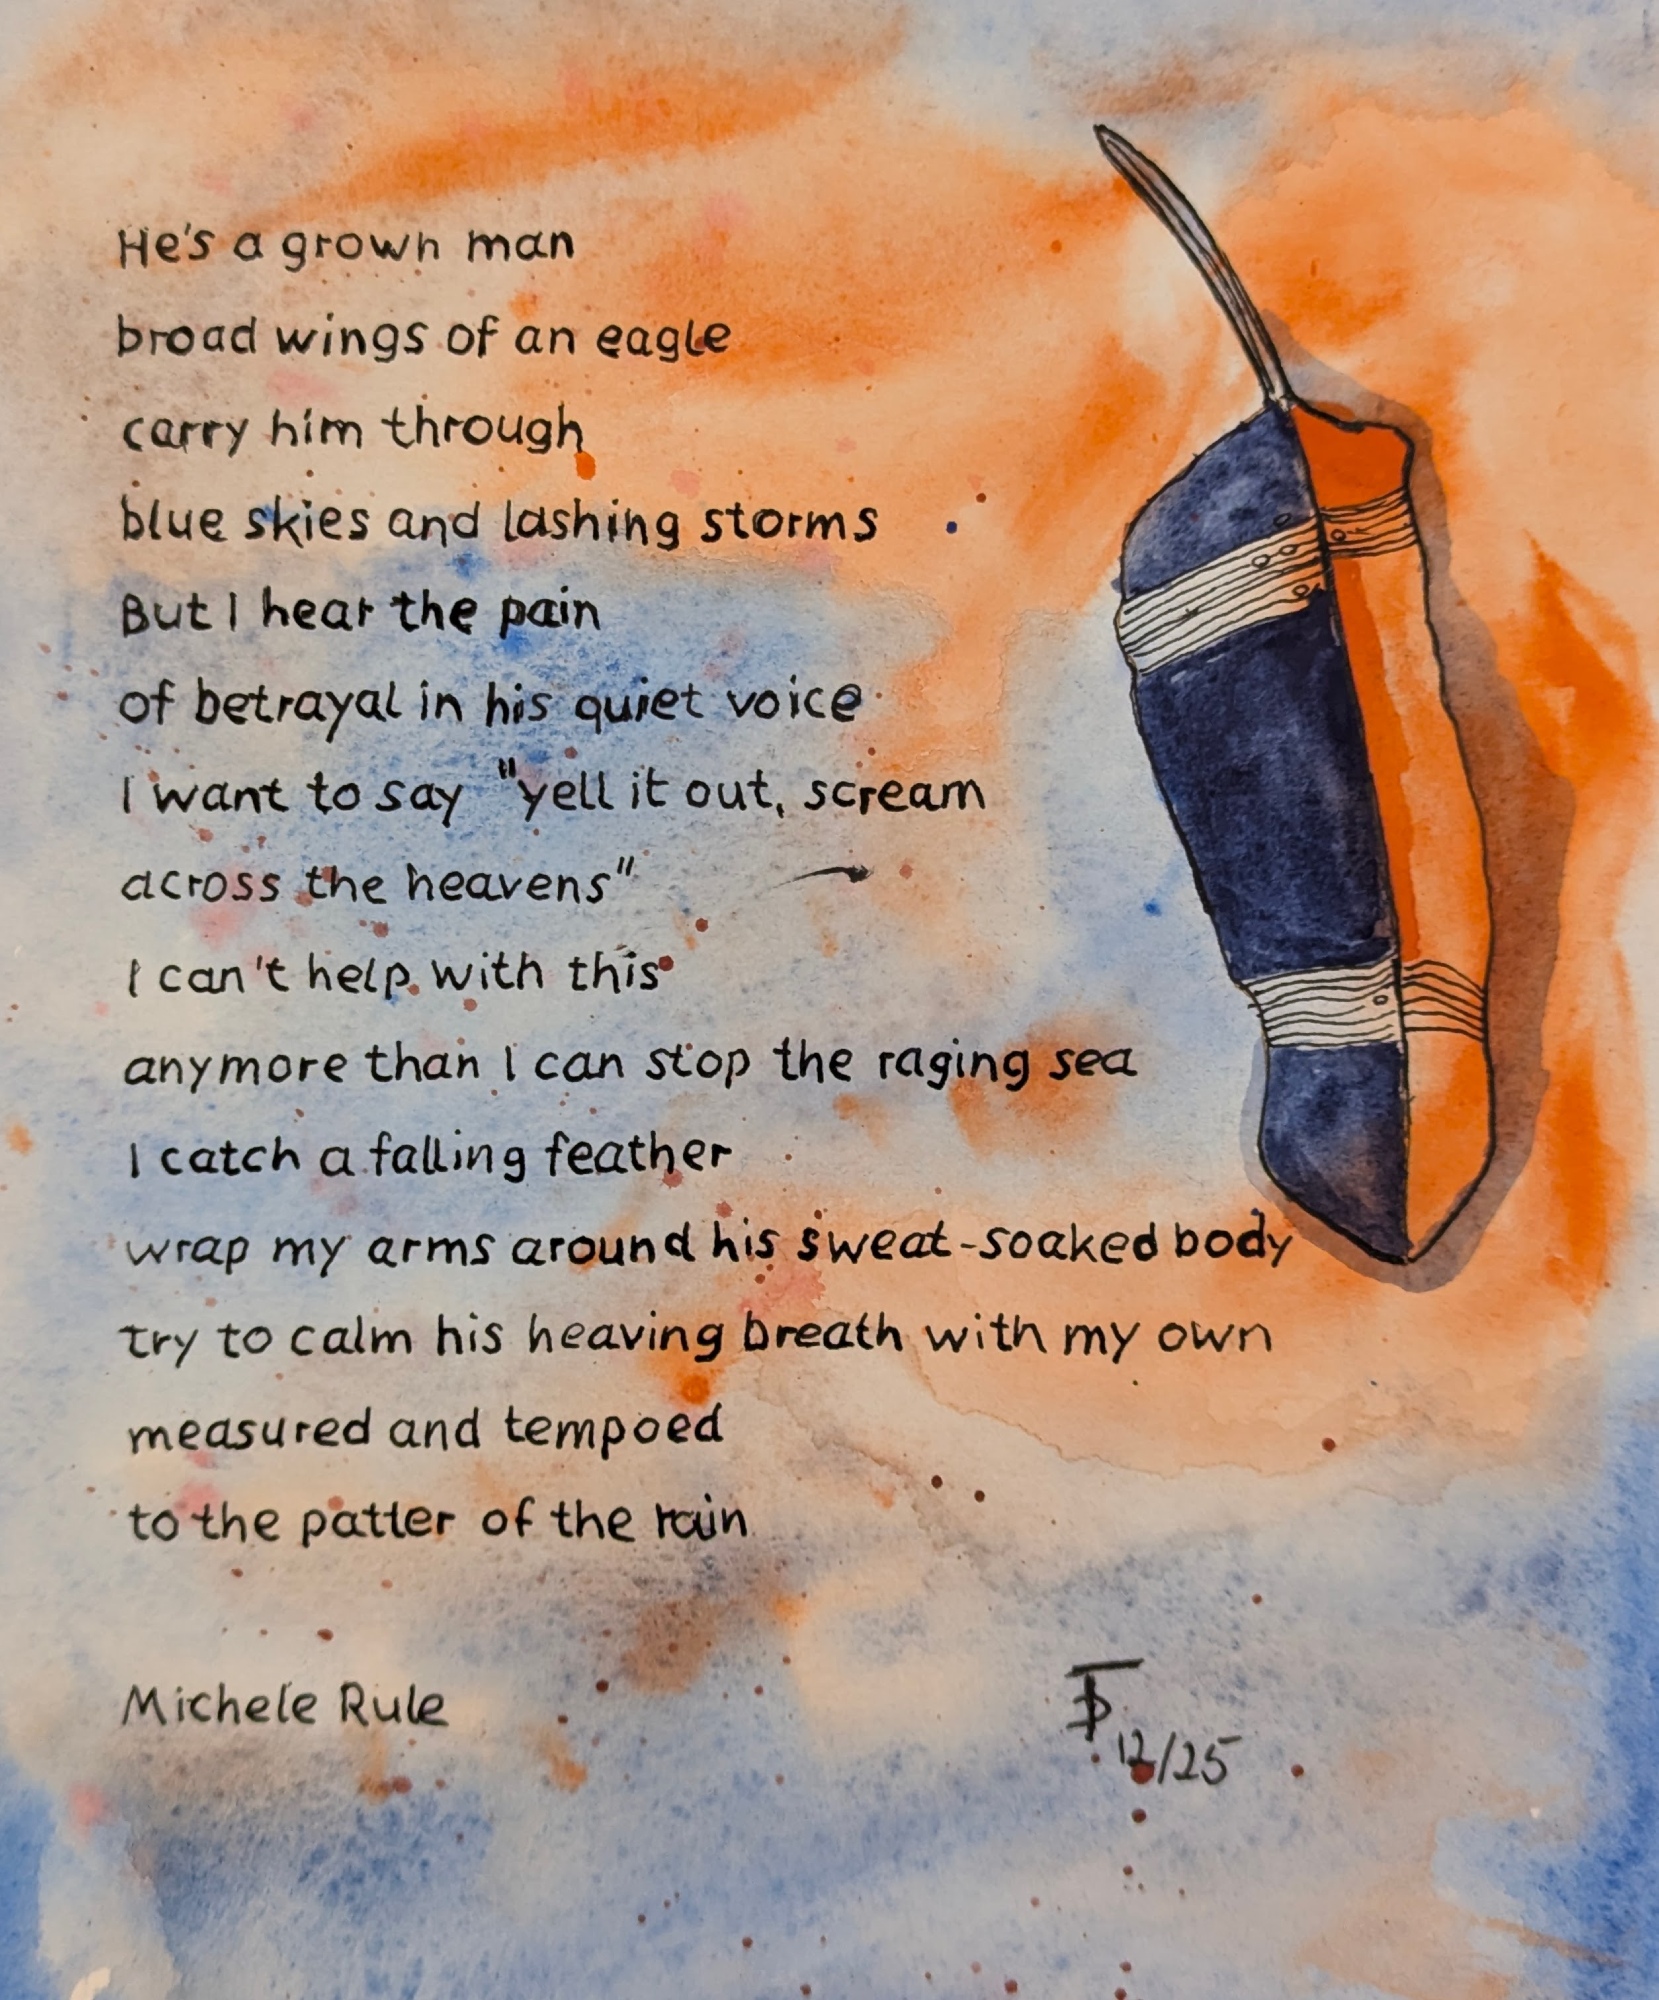 He's a grown man
broad wings of an eagle
carry him through
blue skies and lashing storms
But I hear the pain
of betrayal in his quiet voice
I want to say "yell it out, scream
across the heavens"
I can't help with this
anymore than I can stop the raging sea
I catch a falling feather
wrap my arms around his sweat-soaked body
try to calm his heaving breath with my own
measured and tempoed
to the patter of the rain
Michele Rule
12/25